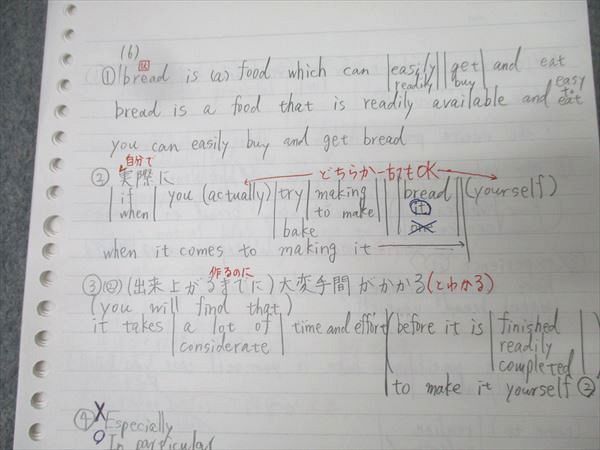 (6)
① bread is (a) food which can easily get and eat
readily buy
bread is a food that is readily available and easy to eat
you can easily buy and get bread
自分で
② 実際に どちらか一方でもOK
if you (actually) try making bread (yourself)
when to make it
bake one
when it comes to making it
作るのに
③ (出来上がるまでに) 大変手間がかかる(とわかる)
(you will find that)
it takes a lot of time and effort before it is finished
considerate readily
completed
to make it yourself ②
④ × Especially
○ In particular